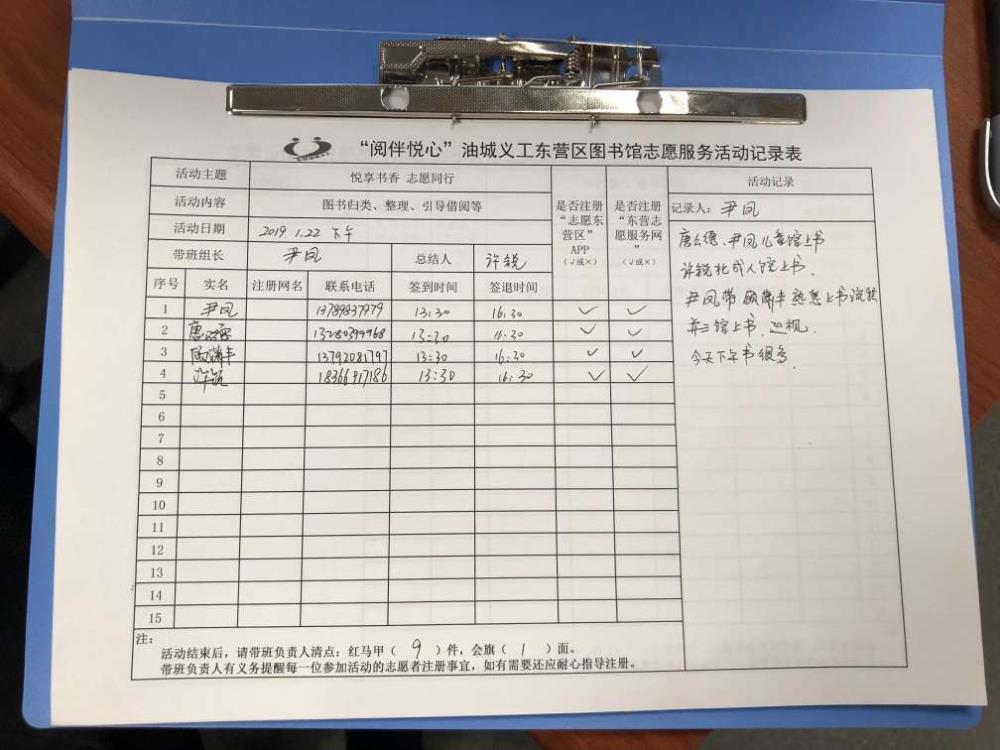 “阅伴悦心”油城义工东营区图书馆志愿服务活动记录表
活动主题 悦享书香 志愿同行
活动内容 图书归类、整理、引导借阅等
活动日期 2019.1.22 下午
带班组长 尹凤 总结人 许锐
是否注册“志愿东营区”APP（√或×）
是否注册“东营志愿服务网”（√或×）
活动记录
记录人：尹凤
尹凤儿童馆上书
许锐 成人馆上书.
尹凤带 熟悉上书流程
并三馆上书.巡视.
今天下午书很多
序号 实名 注册网名 联系电话 签到时间 签退时间
1 尹凤 13789837979 13:30 16:30 √ √
2 唐 13280399968 13:30 16:30 √ √
3 13792081797 13:30 16:30 √ √
4 许锐 18366917186 13:30 16:30 √ √
5
6
7
8
9
10
11
12
13
14
15
注：
活动结束后，请带班负责人清点：红马甲（ 9 ）件，会旗（ 1 ）面。
带班负责人有义务提醒每一位参加活动的志愿者注册事宜，如有需要还应耐心指导注册。